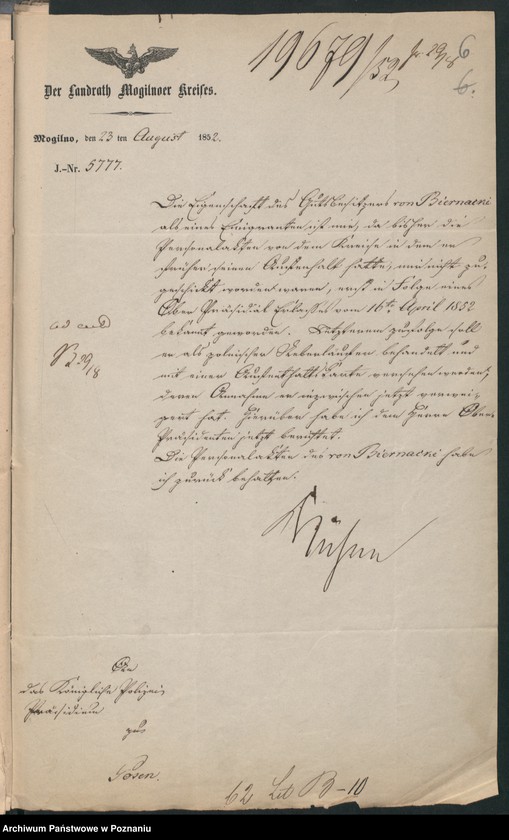 19679/52
pr 29/8
6
6.
Der Landrath Mogilnoer Kreises.
Mogilno, den 23 ten August 1852.
J.-Nr. 5777.
Die Eigenschaft des Gutsbesitzers von Biernacki
als eines Emigranten ist mir, da bisher die
Personalakten von dem Kreise in dem er
früher seinen Aufenthalt hatte, mir nicht zu-
geschickt worden waren, erst in Folge eines
Ober Präsidial Erlasses vom 16ten April 1852
bekannt geworden. Letzterem zufolge soll
er als polnischer Ueberläufer behandelt und
mit einer Aufenthaltskarte versehen werden,
deren Annahme er inzwischen jetzt verwei-
gert hat. Hierüber habe ich dem Herrn Ober
Präsidenten jetzt berichtet.
Die Personalakten des von Biernacki habe
ich zurück behalten.
ad acta
29/8
An
das Königliche Polizei
Präsidium
zu
Posen.
62 Lit B-10
Archiwum Państwowe w Poznaniu